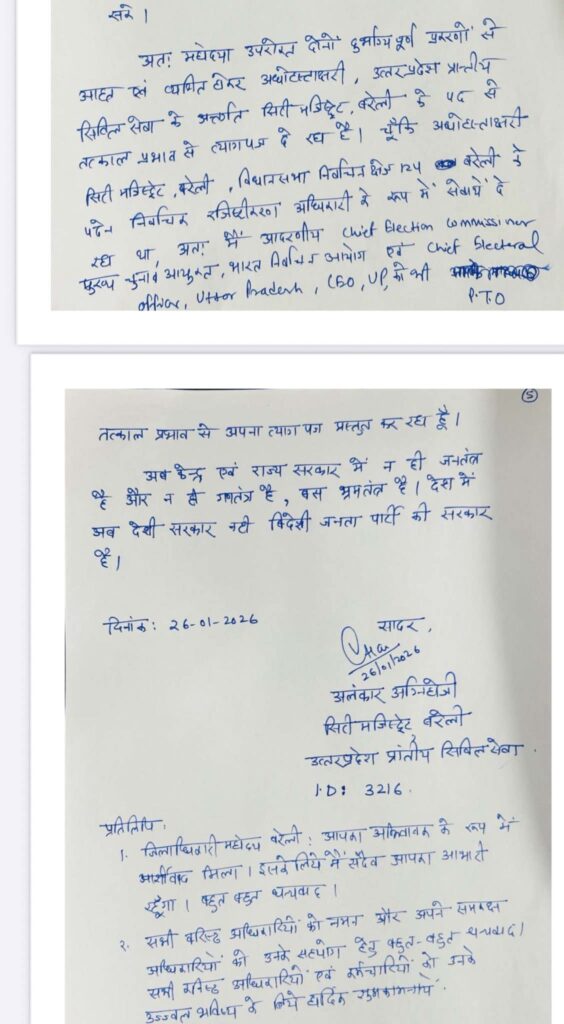 सरे।
अतः महोदया उपरोक्त दोनों दुर्भाग्यपूर्ण प्रकरणों से
आहत एवं व्यथित होकर अधोहस्ताक्षरी, उत्तर प्रदेश प्रान्तीय
सिविल सेवा के अर्न्तगत सिटी मजिस्ट्रेट, बरेली के पद से
तत्काल प्रभाव से त्यागपत्र दे रहा है। चूँकि अधोहस्ताक्षरी
सिटी मजिस्ट्रेट, बरेली, विधानसभा निर्वाचन क्षेत्र 124 बरेली के
पदेन निर्वाचक रजिस्ट्रीकरण अधिकारी के रूप में सेवायें दे
रहा था, अतः मैं आदरणीय Chief Election Commissioner
मुख्य चुनाव आयुक्त, भारत निर्वाचन आयोग एवं Chief Electoral
officer, Uttar Pradesh, CEO, UP, को भी
P.T.O
5
तत्काल प्रभाव से अपना त्याग पत्र प्रस्तुत कर रहा हूँ।
अब केन्द्र एवं राज्य सरकार में न ही जनतंत्र
है और न ही गणतंत्र है, बस भ्रमतंत्र है। देश में
अब देशी सरकार नही विदेशी जनता पार्टी की सरकार
है।
दिनांक: 26-01-2026
सादर,
26/01/2026
अलंकार अग्निहोत्री
सिटी मजिस्ट्रेट, बरेली
उत्तर प्रदेश प्रांतीय सिविल सेवा.
I.D: 3216.
प्रतिलिपि:
1. जिलाधिकारी महोदय बरेली: आपका अभिभावक के रूप में
आर्शीवाद मिला। इसके लिये मैं सदैव आपका आभारी
रहूँगा। बहुत बहुत धन्यवाद।
2. सभी वरिष्ठ अधिकारियों को नमन और अपने समकक्ष
अधिकारियों को उनके सहयोग हेतु बहुत-बहुत धन्यवाद।
सभी कनिष्ठ अधिकारियों एवं कर्मचारियों को उनके
उज्ज्वल भविष्य के लिये हार्दिक शुभकामनायें.